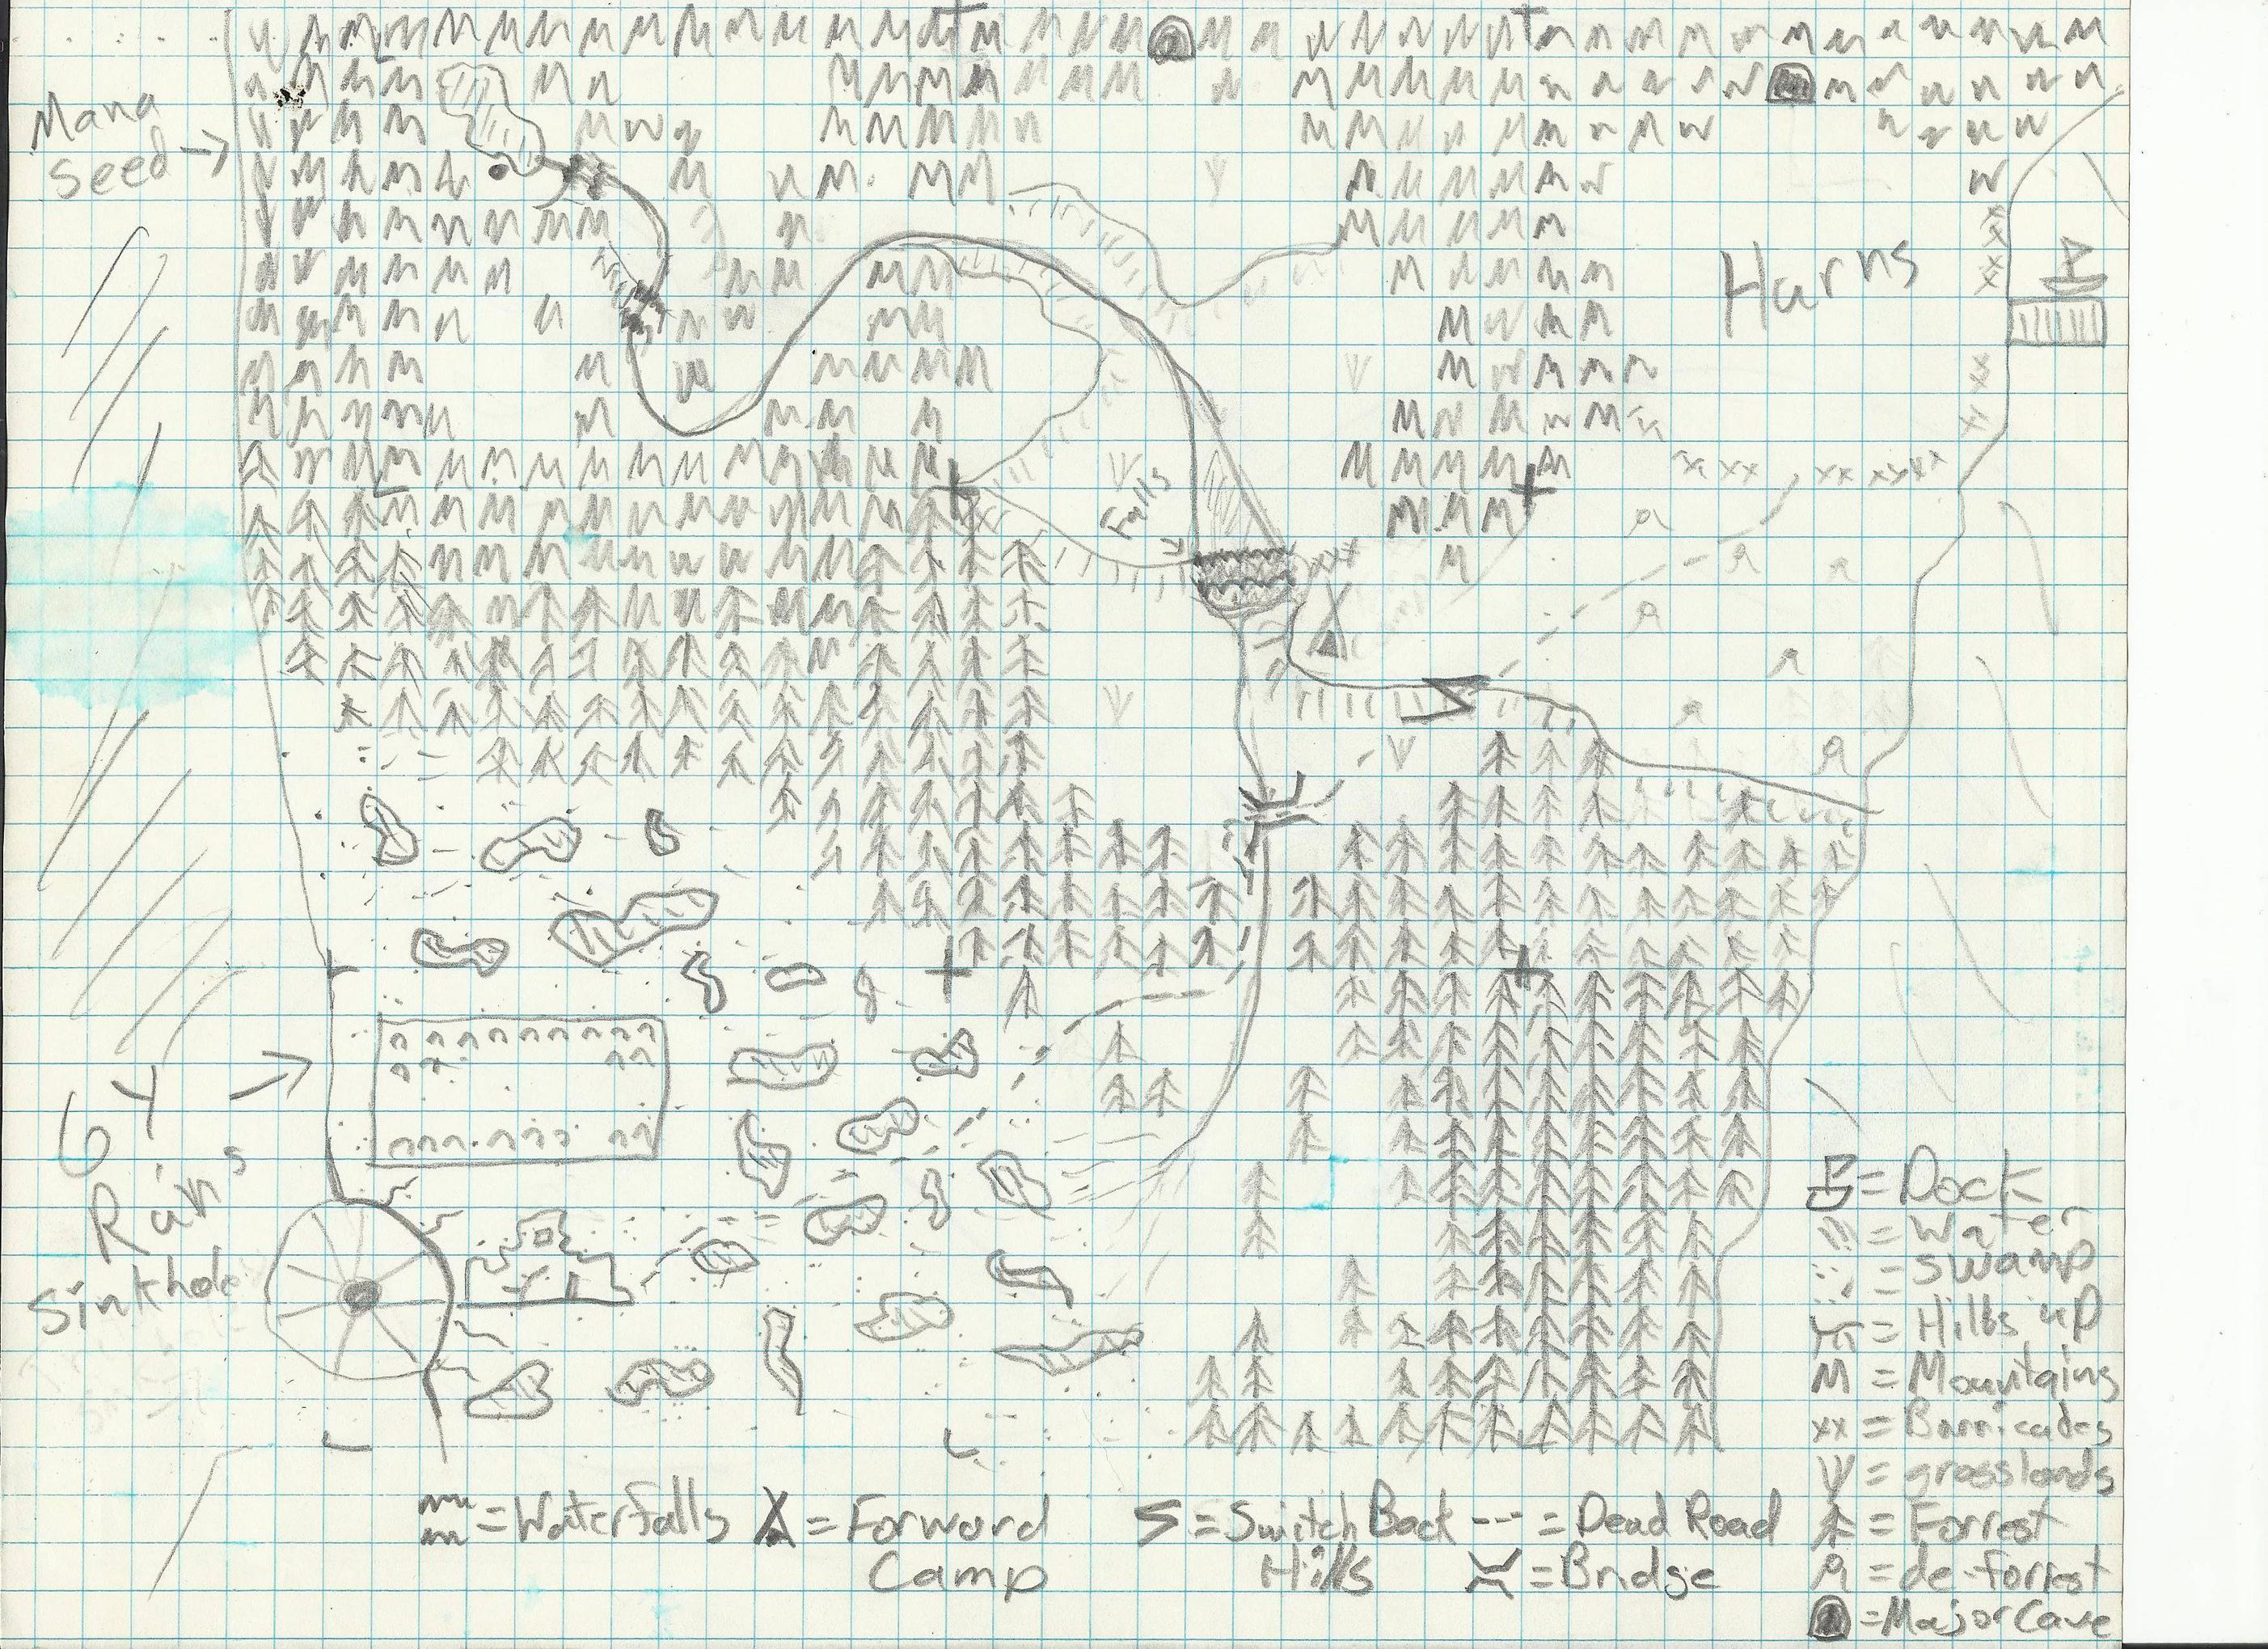 Mana
Seed
Harns
Falls
Sinkhole
= Dock
= Water
= Swamp
= Hills up
M = Mountains
xx = Barricades
= grasslands
= Forrest
= de-forrest
= Major Cave
= Waterfalls
= Forword
Camp
= Switch Back
Hills
--- = Dead Road
= Bridge